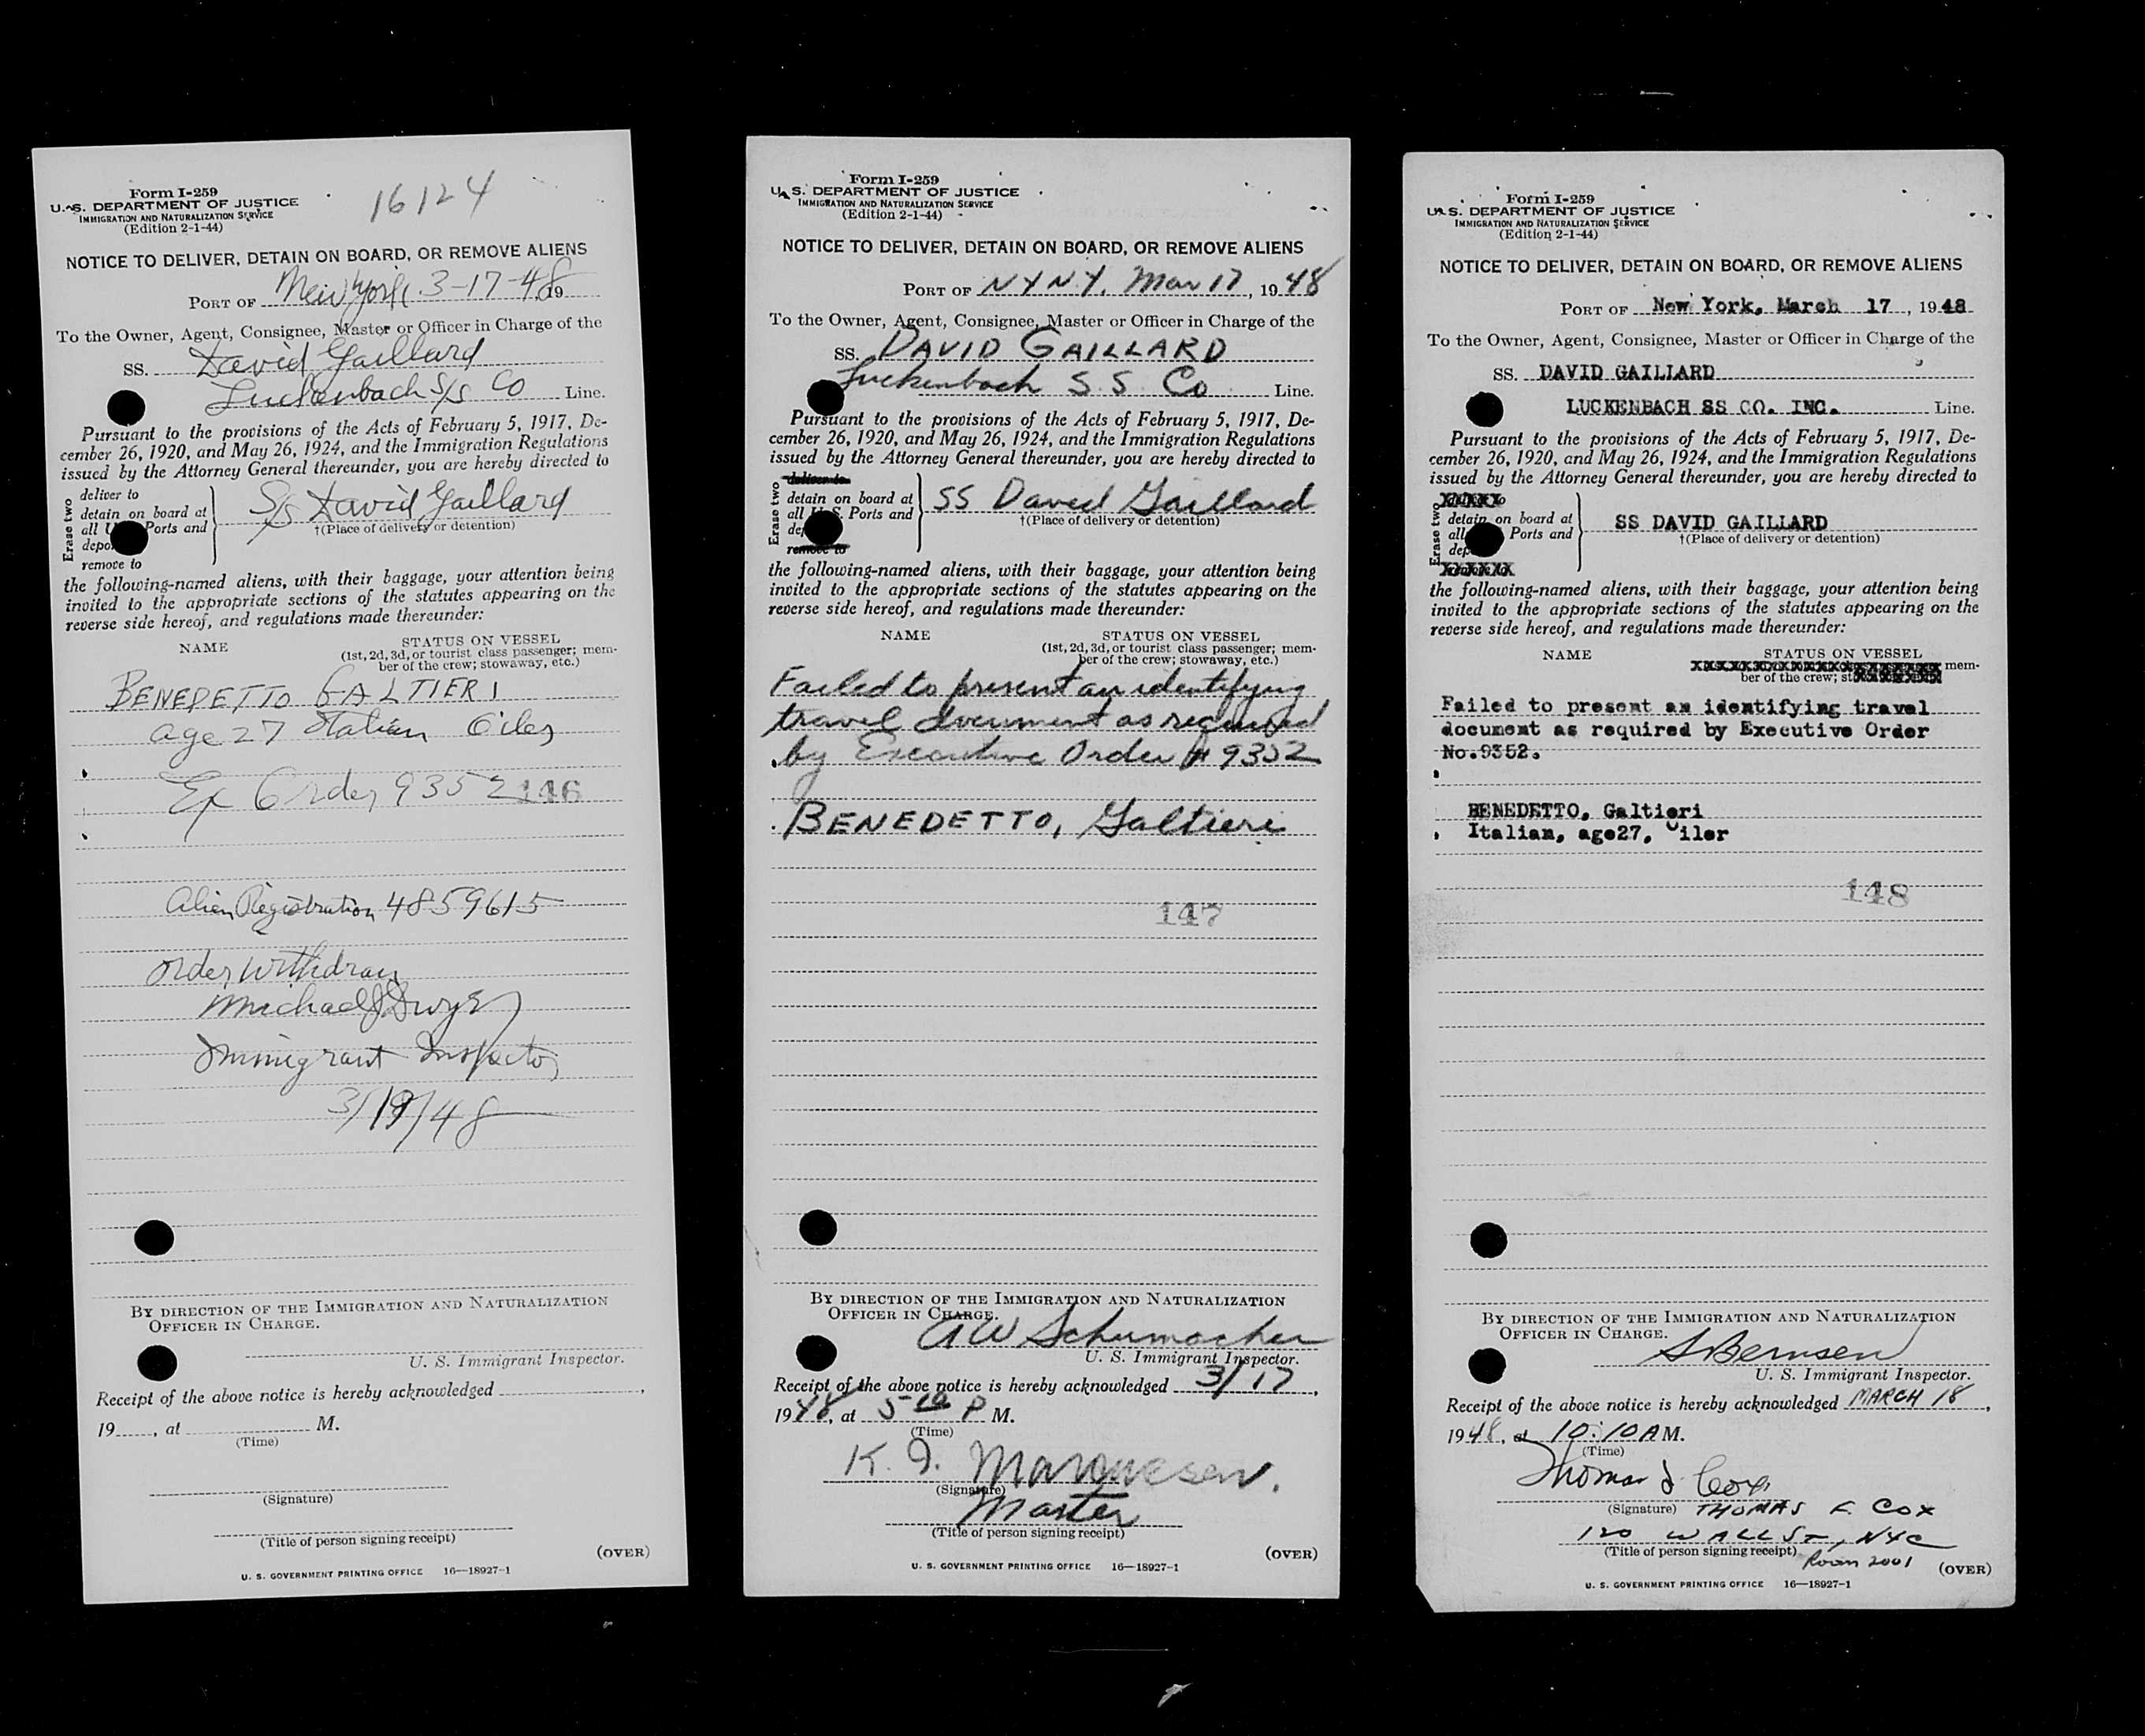 Form I-259
U. S. DEPARTMENT OF JUSTICE
IMMIGRATION AND NATURALIZATION SERVICE
(Edition 2-1-44)
16124
NOTICE TO DELIVER, DETAIN ON BOARD, OR REMOVE ALIENS
PORT OF New York 3-17-48 19
To the Owner, Agent, Consignee, Master or Officer in Charge of the
SS. David Gaillard
Luckenbach S/S Co Line.
Pursuant to the provisions of the Acts of February 5, 1917, De-
cember 26, 1920, and May 26, 1924, and the Immigration Regulations
issued by the Attorney General thereunder, you are hereby directed to
Erase two
deliver to
detain on board at
all U. Ports and
depo
remove to
S/S David Gaillard
†(Place of delivery or detention)
the following-named aliens, with their baggage, your attention being
invited to the appropriate sections of the statutes appearing on the
reverse side hereof, and regulations made thereunder:
NAME
STATUS ON VESSEL
(1st, 2d, 3d, or tourist class passenger; mem-
ber of the crew; stowaway, etc.)
BENEDETTO GALTIERI
age 27 Italian Oiler
Ex Order 9352 146
Alien Registration 4859615
Order Withdrawn
Michael J Dwyer
Immigrant Inspector
3/19/48
BY DIRECTION OF THE IMMIGRATION AND NATURALIZATION
OFFICER IN CHARGE.
U. S. Immigrant Inspector.
Receipt of the above notice is hereby acknowledged ,
19 , at M.
(Time)
(Signature)
(Title of person signing receipt)
(OVER)
U. S. GOVERNMENT PRINTING OFFICE 16—18927-1
Form I-259
U. S. DEPARTMENT OF JUSTICE
IMMIGRATION AND NATURALIZATION SERVICE
(Edition 2-1-44)
NOTICE TO DELIVER, DETAIN ON BOARD, OR REMOVE ALIENS
PORT OF N Y N Y, Mar 17, 1948
To the Owner, Agent, Consignee, Master or Officer in Charge of the
SS. DAVID GAILLARD
Luckenbach S.S. Co Line.
Pursuant to the provisions of the Acts of February 5, 1917, De-
cember 26, 1920, and May 26, 1924, and the Immigration Regulations
issued by the Attorney General thereunder, you are hereby directed to
Erase two
deliver to
detain on board at
all U. S. Ports and
dep
remove to
SS David Gaillard
†(Place of delivery or detention)
the following-named aliens, with their baggage, your attention being
invited to the appropriate sections of the statutes appearing on the
reverse side hereof, and regulations made thereunder:
NAME
STATUS ON VESSEL
(1st, 2d, 3d, or tourist class passenger; mem-
ber of the crew; stowaway, etc.)
Failed to present an identifying
travel document as required
by Executive Order # 9352
BENEDETTO, Galtieri
147
BY DIRECTION OF THE IMMIGRATION AND NATURALIZATION
OFFICER IN CHARGE.
A W Schumacher
U. S. Immigrant Inspector.
Receipt of the above notice is hereby acknowledged 3/17,
1948, at 5 10 P M.
(Time)
K. J.
(Signature)
Master
(Title of person signing receipt)
(OVER)
U. S. GOVERNMENT PRINTING OFFICE 16—18927-1
Form I-259
U. S. DEPARTMENT OF JUSTICE
IMMIGRATION AND NATURALIZATION SERVICE
(Edition 2-1-44)
NOTICE TO DELIVER, DETAIN ON BOARD, OR REMOVE ALIENS
PORT OF New York, March 17, 1948
To the Owner, Agent, Consignee, Master or Officer in Charge of the
SS. DAVID GAILLARD
LUCKENBACH SS CO. INC. Line.
Pursuant to the provisions of the Acts of February 5, 1917, De-
cember 26, 1920, and May 26, 1924, and the Immigration Regulations
issued by the Attorney General thereunder, you are hereby directed to
Erase two
detain on board at
all Ports and
dep
SS DAVID GAILLARD
†(Place of delivery or detention)
the following-named aliens, with their baggage, your attention being
invited to the appropriate sections of the statutes appearing on the
reverse side hereof, and regulations made thereunder:
NAME
STATUS ON VESSEL
mem-
ber of the crew;
Failed to present an identifying travel
document as required by Executive Order
No.9352.
BENEDETTO, Galtieri
Italian, age27, Oiler
148
BY DIRECTION OF THE IMMIGRATION AND NATURALIZATION
OFFICER IN CHARGE.
S Bernsen
U. S. Immigrant Inspector.
Receipt of the above notice is hereby acknowledged MARCH 18,
1948, at 10:10 A M.
(Time)
Thomas F. Cox
(Signature) THOMAS F. COX
120 WALL ST, NYC
(Title of person signing receipt) Room 2001
(OVER)
U. S. GOVERNMENT PRINTING OFFICE 16—18927-1